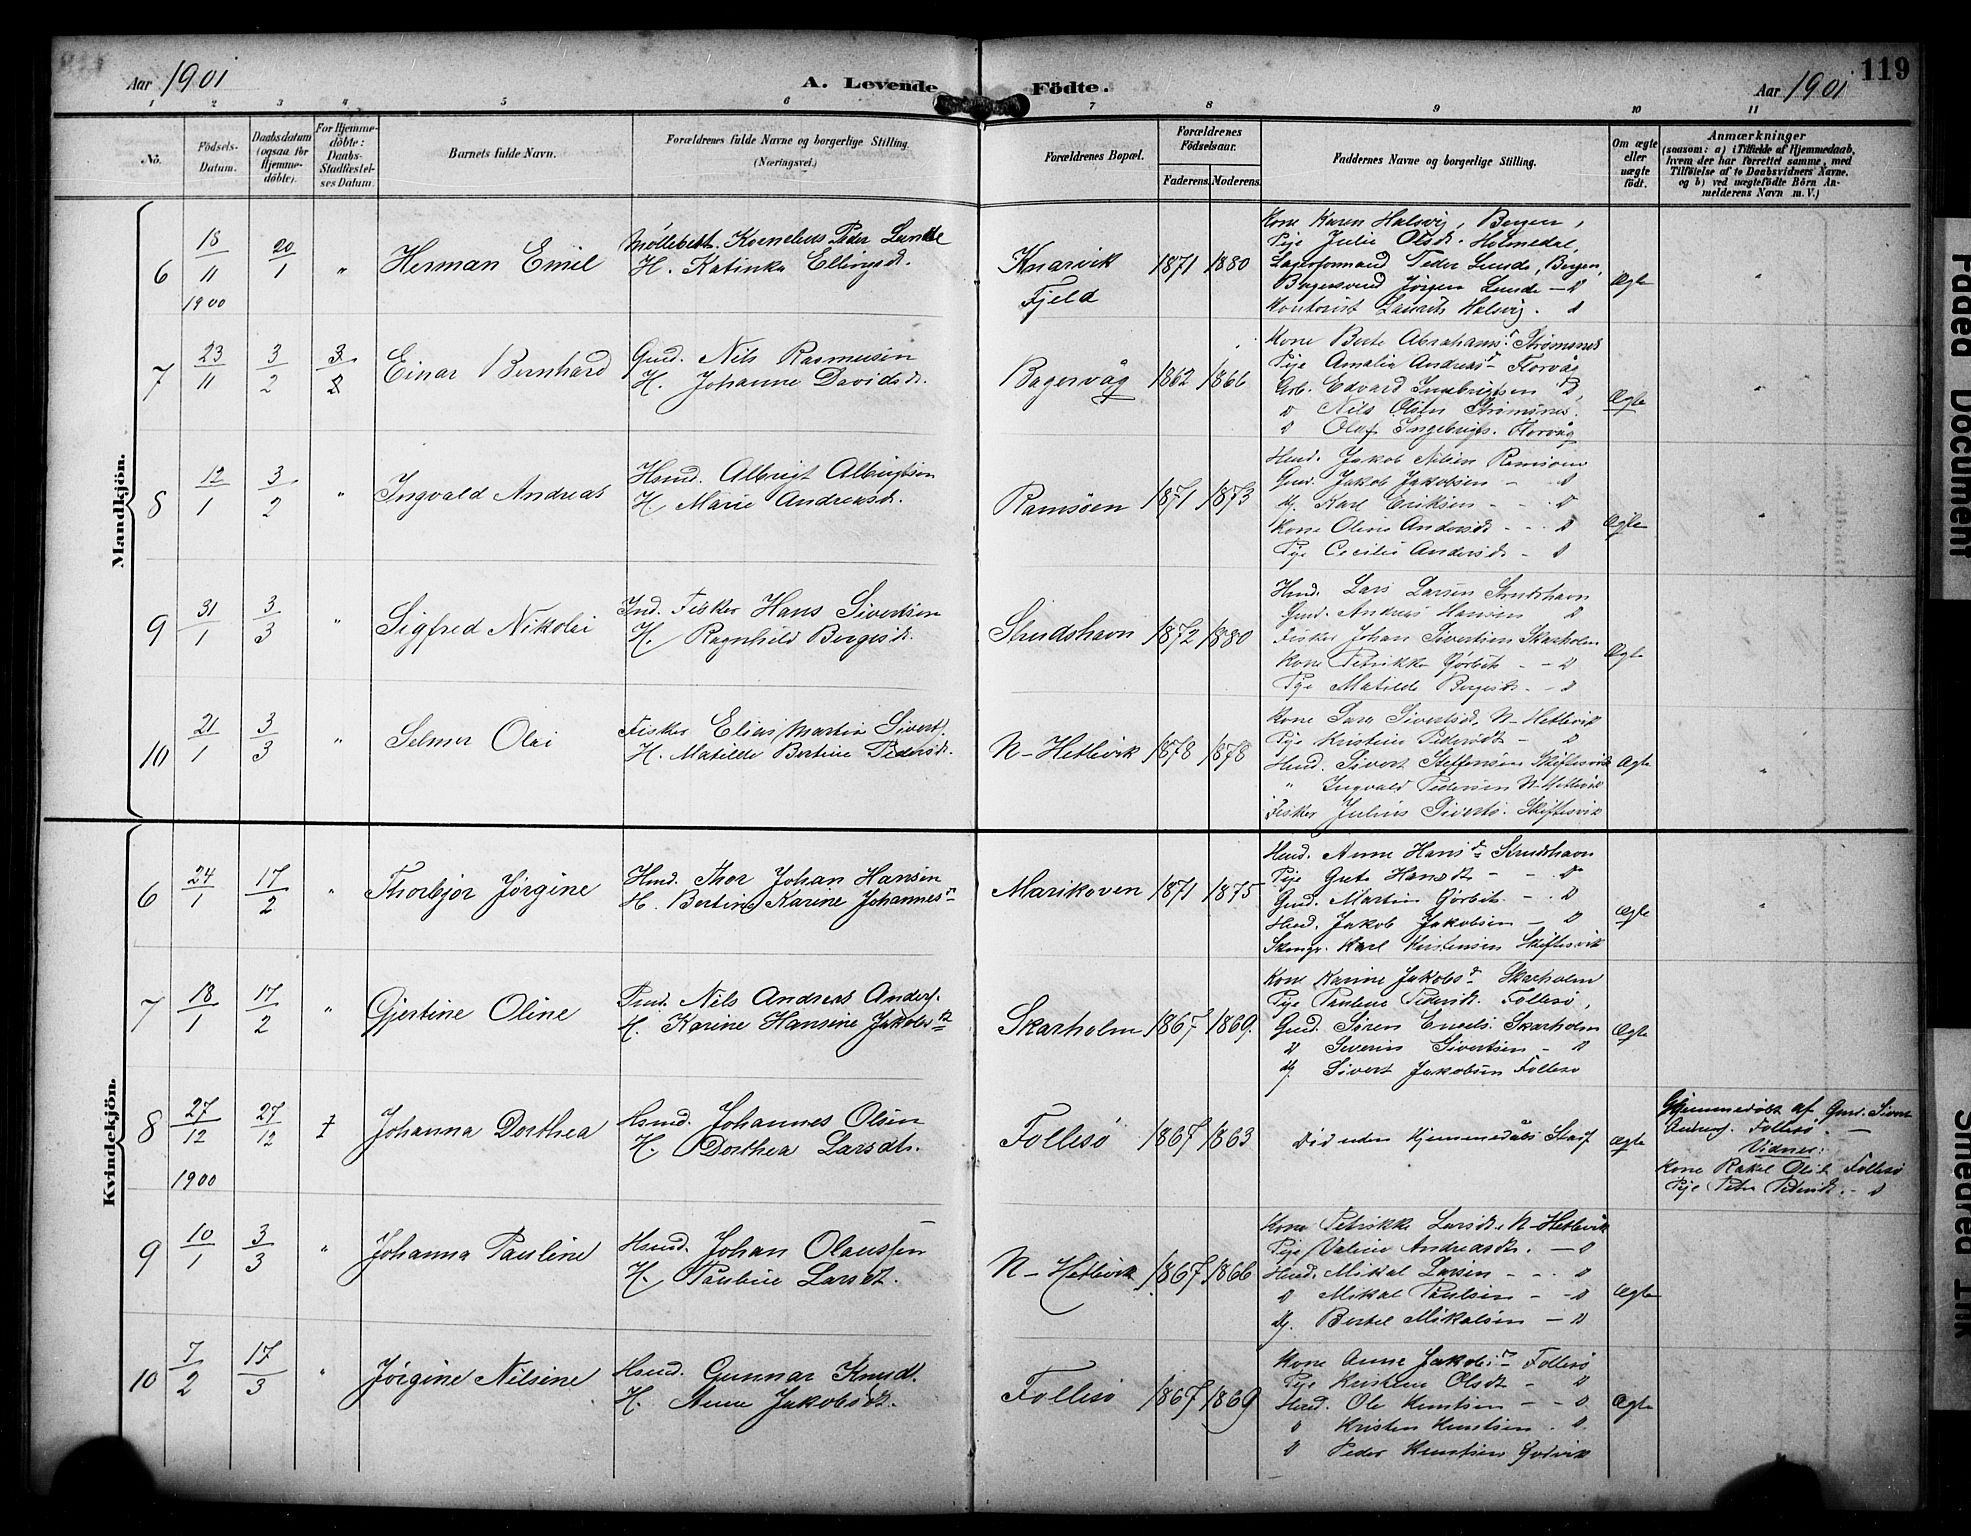 Aar 1901
A. Levende Födte.
Aar 1901
119
1 2 3 4 5 6 7 8 9 10 11
No.
Födsels-Datum.
Daabsdatum (ogsaa for Hjemme-döbte).
For Hjemme-döbte: Daabs-Stadfæstel-ses Datum.
Barnets fulde Navn.
Forældrenes fulde Navne og borgerlige Stilling.
(Næringsvei.)
Forældrenes Bopæl.
Forældrenes Födselsaar.
Faderens. Moderens.
Faddernes Navne og borgerlige Stilling.
Om ægte eller uægte födt.
Anmærkninger
(saasom: a) i Tilfælde af Hjemmedaab,
hvem der har forrettet samme, med
Tilföielse af to Daabsvidners Navne.
og b) ved uægtefödte Börn An-
melderens Navn m. V.)
Mandkjön.
6 18/11 1900 20/1 " Herman Emil
Kornelius Peder Lunde
H. Katinka Ellingsd.
Knarvik Fjeld 1871 1880
Kone Karen Halsvig, Bergen,
Pige Julie Olsdt. Holmedal,
Lagerformand Peder Lunde, Bergen,
Jörgen Lunde — D
Kontorist Laurits Halsvig. D
Ægte "
7 23/11 3/2 3/2 Einar Bernhard
Gmd. Nils Rasmusen
H. Johanne Davidsd.
Bagervåg 1862 1866
Kone Berte Abrahams. Strömsnes
Pige Amalia Andreasd Florvåg
Arb. Edvard Ingebrigtsen D,
D Nils Olsen Strömsnes.
D Olaf Ingebrigts. Florvåg
Ægte "
8 12/1 3/2 " Ingvald Andreas
Hsmd. Albrigt Albrigtsen
H. Marie Andreasd.
Ramsöen 1871 1873
Hmd. Jakob Nilsen Ramsöen
Gmd. Jakob Jakobsen — D
Ug. Karl Eriksen - - D
Kone Oline Andersd. - - D
Pige Cecilie Andersdt - D
Ægte "
9 31/1 3/3 " Sigfred Nikolai
Ind. Fisker Hans Sivertsen
H. Ragnhild Bergesd.
Strudshavn 1872 1880
Hmd. Lars Larsen Strudshavn
Gmd. Andreas Hansen D
Fisker Johan Sivertsen Skarholm
Kone Petrikke - - D
Pige Matilde Bergesdt. - D
Ægte
10 21/1 3/3 " Selmer Olai
Fisker Elias Martin Sivert.
H. Matilde Bertine Pedersdt.
N-Hetlevik 1878 1878
Kone Sara Sivertsd. N-Hetlevik
Pige Kristine Pedersdt - D
Hmd. Sivert Steffensen Skiftesvik
" Ingvald Pedersen N-Hetlevik
Fisker Julius Siverts. Skiftesvik
Ægte "
Kvindekjön.
6 24/1 17/2 " Thorbjör Jörgine
Hmd. Thor Johan Hansen
H. Bertine Karine Johannesd
Marikoven 1871 1875
Hmd. Anne Hansd Strudshavn
Pige Grete Hansdt - - D
Gmd. Martin - D
Hmd. Jakob Jakobsen - D
Karl Kristensen Skiftesvik
Ægte "
7 18/1 17/2 " Gjertine Oline
Nils Andreas Anders.
H. Karine Hansine Jakobsdt
Skarholm 1867 1869.
Kone Karine Jakobsd Skarholm
Pige Pauline Pedersdt. Follesö,
Gmd. Sören Skarholm
D Severin Sivertsen - D
Ug. Sivert Jakobsen Follesö
Ægte
8 27/12 1900 27/12 Johanna Dorthea
Hsmd. Johannes Olsen
H. Dorthea Larsdt.
Follesö 1867 1863
Död uden Hjemmedåbs Staf
Ægte
Hjemmedöbt af Gmd. Sivert
Anders. Follesö. —
Vidner:
Kone Rakel Olsdt Follesö
Pige Petra Pedersdt. - D
9 10/1 3/3 " Johanna Pauline
Hsmd. Johan Olaussen
H. Pauline Larsdt.
N-Hetlevik 1867 1866
Kone Petrikke Larsdt. N-Hetlevik
Pige Valine Andreasdt. — D
Hmd. Mikal Larsen - - D
D Mikal Paulsen - - D
Ug. Bertel Mikalsen — D
Ægte
10 7/2 17/3 " Jörgine Nilsine
Hsmd. Gunnar Knuds.
H. Anne Jakobsdt.
Follesö 1867 1869
Kone Anne Jakobsd Follesö
Pige Kristine Olsdt - D
Hmd. Ole Knutsen - - D
D Kristen Knutsen - D
D Peder Knutsen
Ægte
Faded Document
Smeared Ink